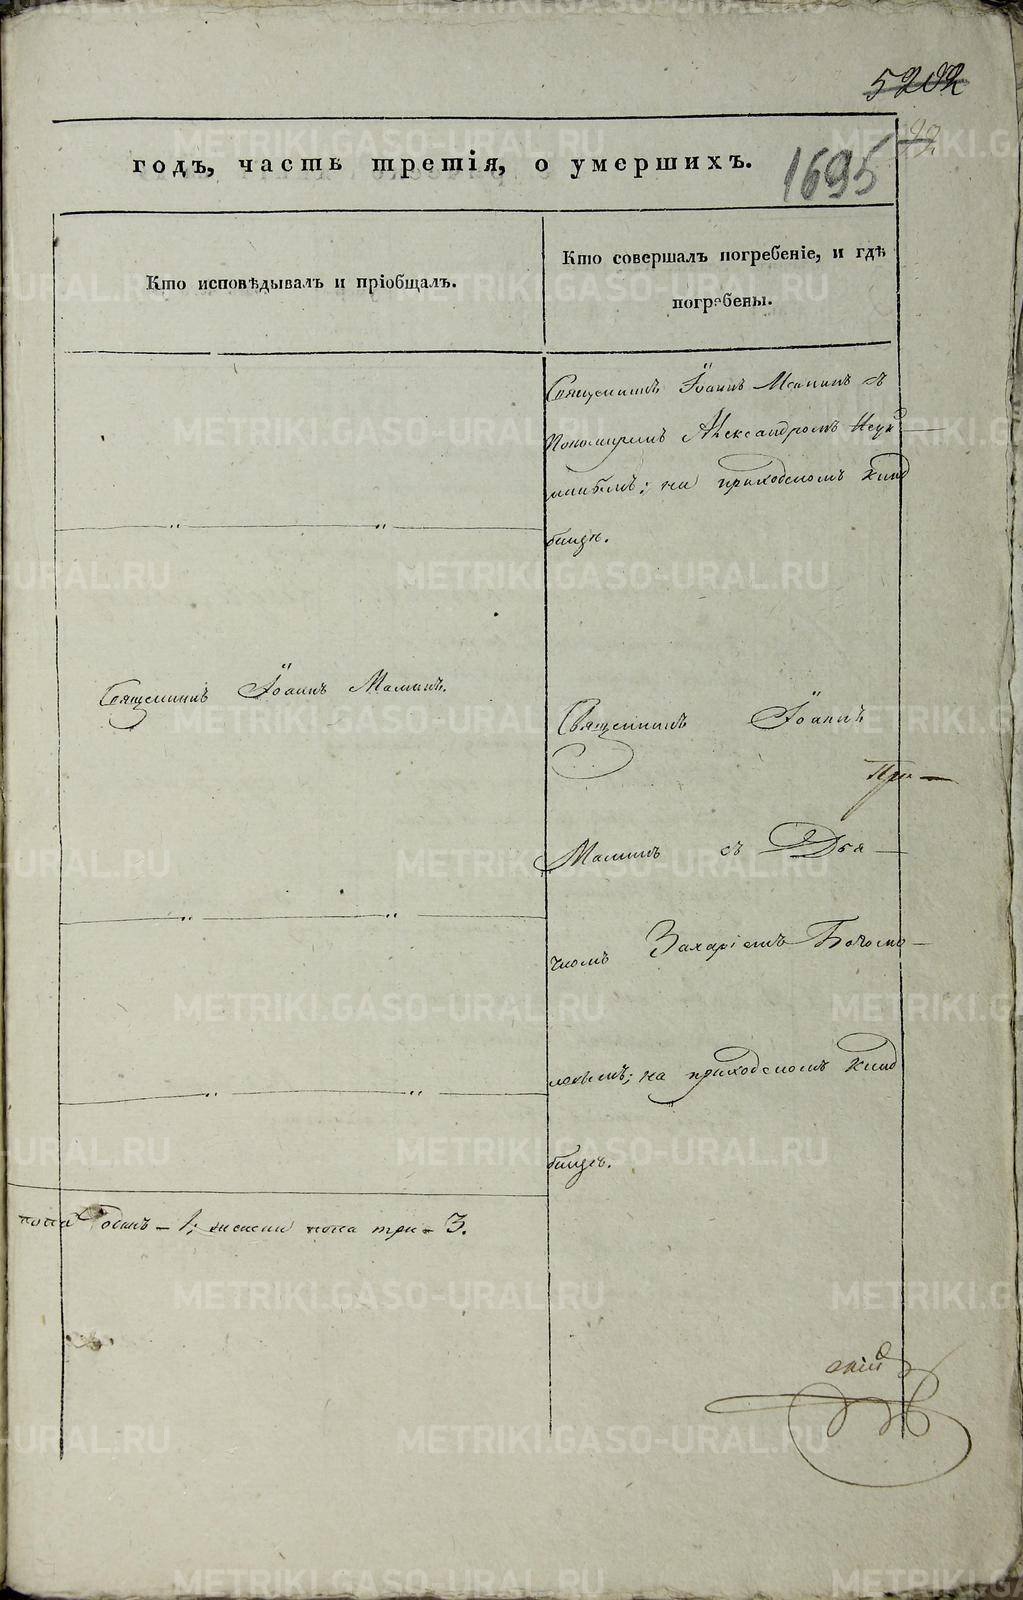 5202
99.
годъ, часть третія, о умершихъ.
1695
Кто исповѣдывалъ и пріобщалъ.
Кто совершалъ погребеніе, и гдѣ
погребены.
Священникъ Іоаннъ Маминъ съ
Пономаремъ Александромъ
на приходскомъ клад
бищѣ.
Священникъ Іоаннъ Маминъ.
Священникъ Іоаннъ
При-
Маминъ съ Дья-
чкомъ Захаріемъ Богомо-
ловымъ; на приходскомъ клад
бищѣ.
пола одинъ - 1; женска пола три - 3.
скій
METRIKI.GASO-URAL.RU